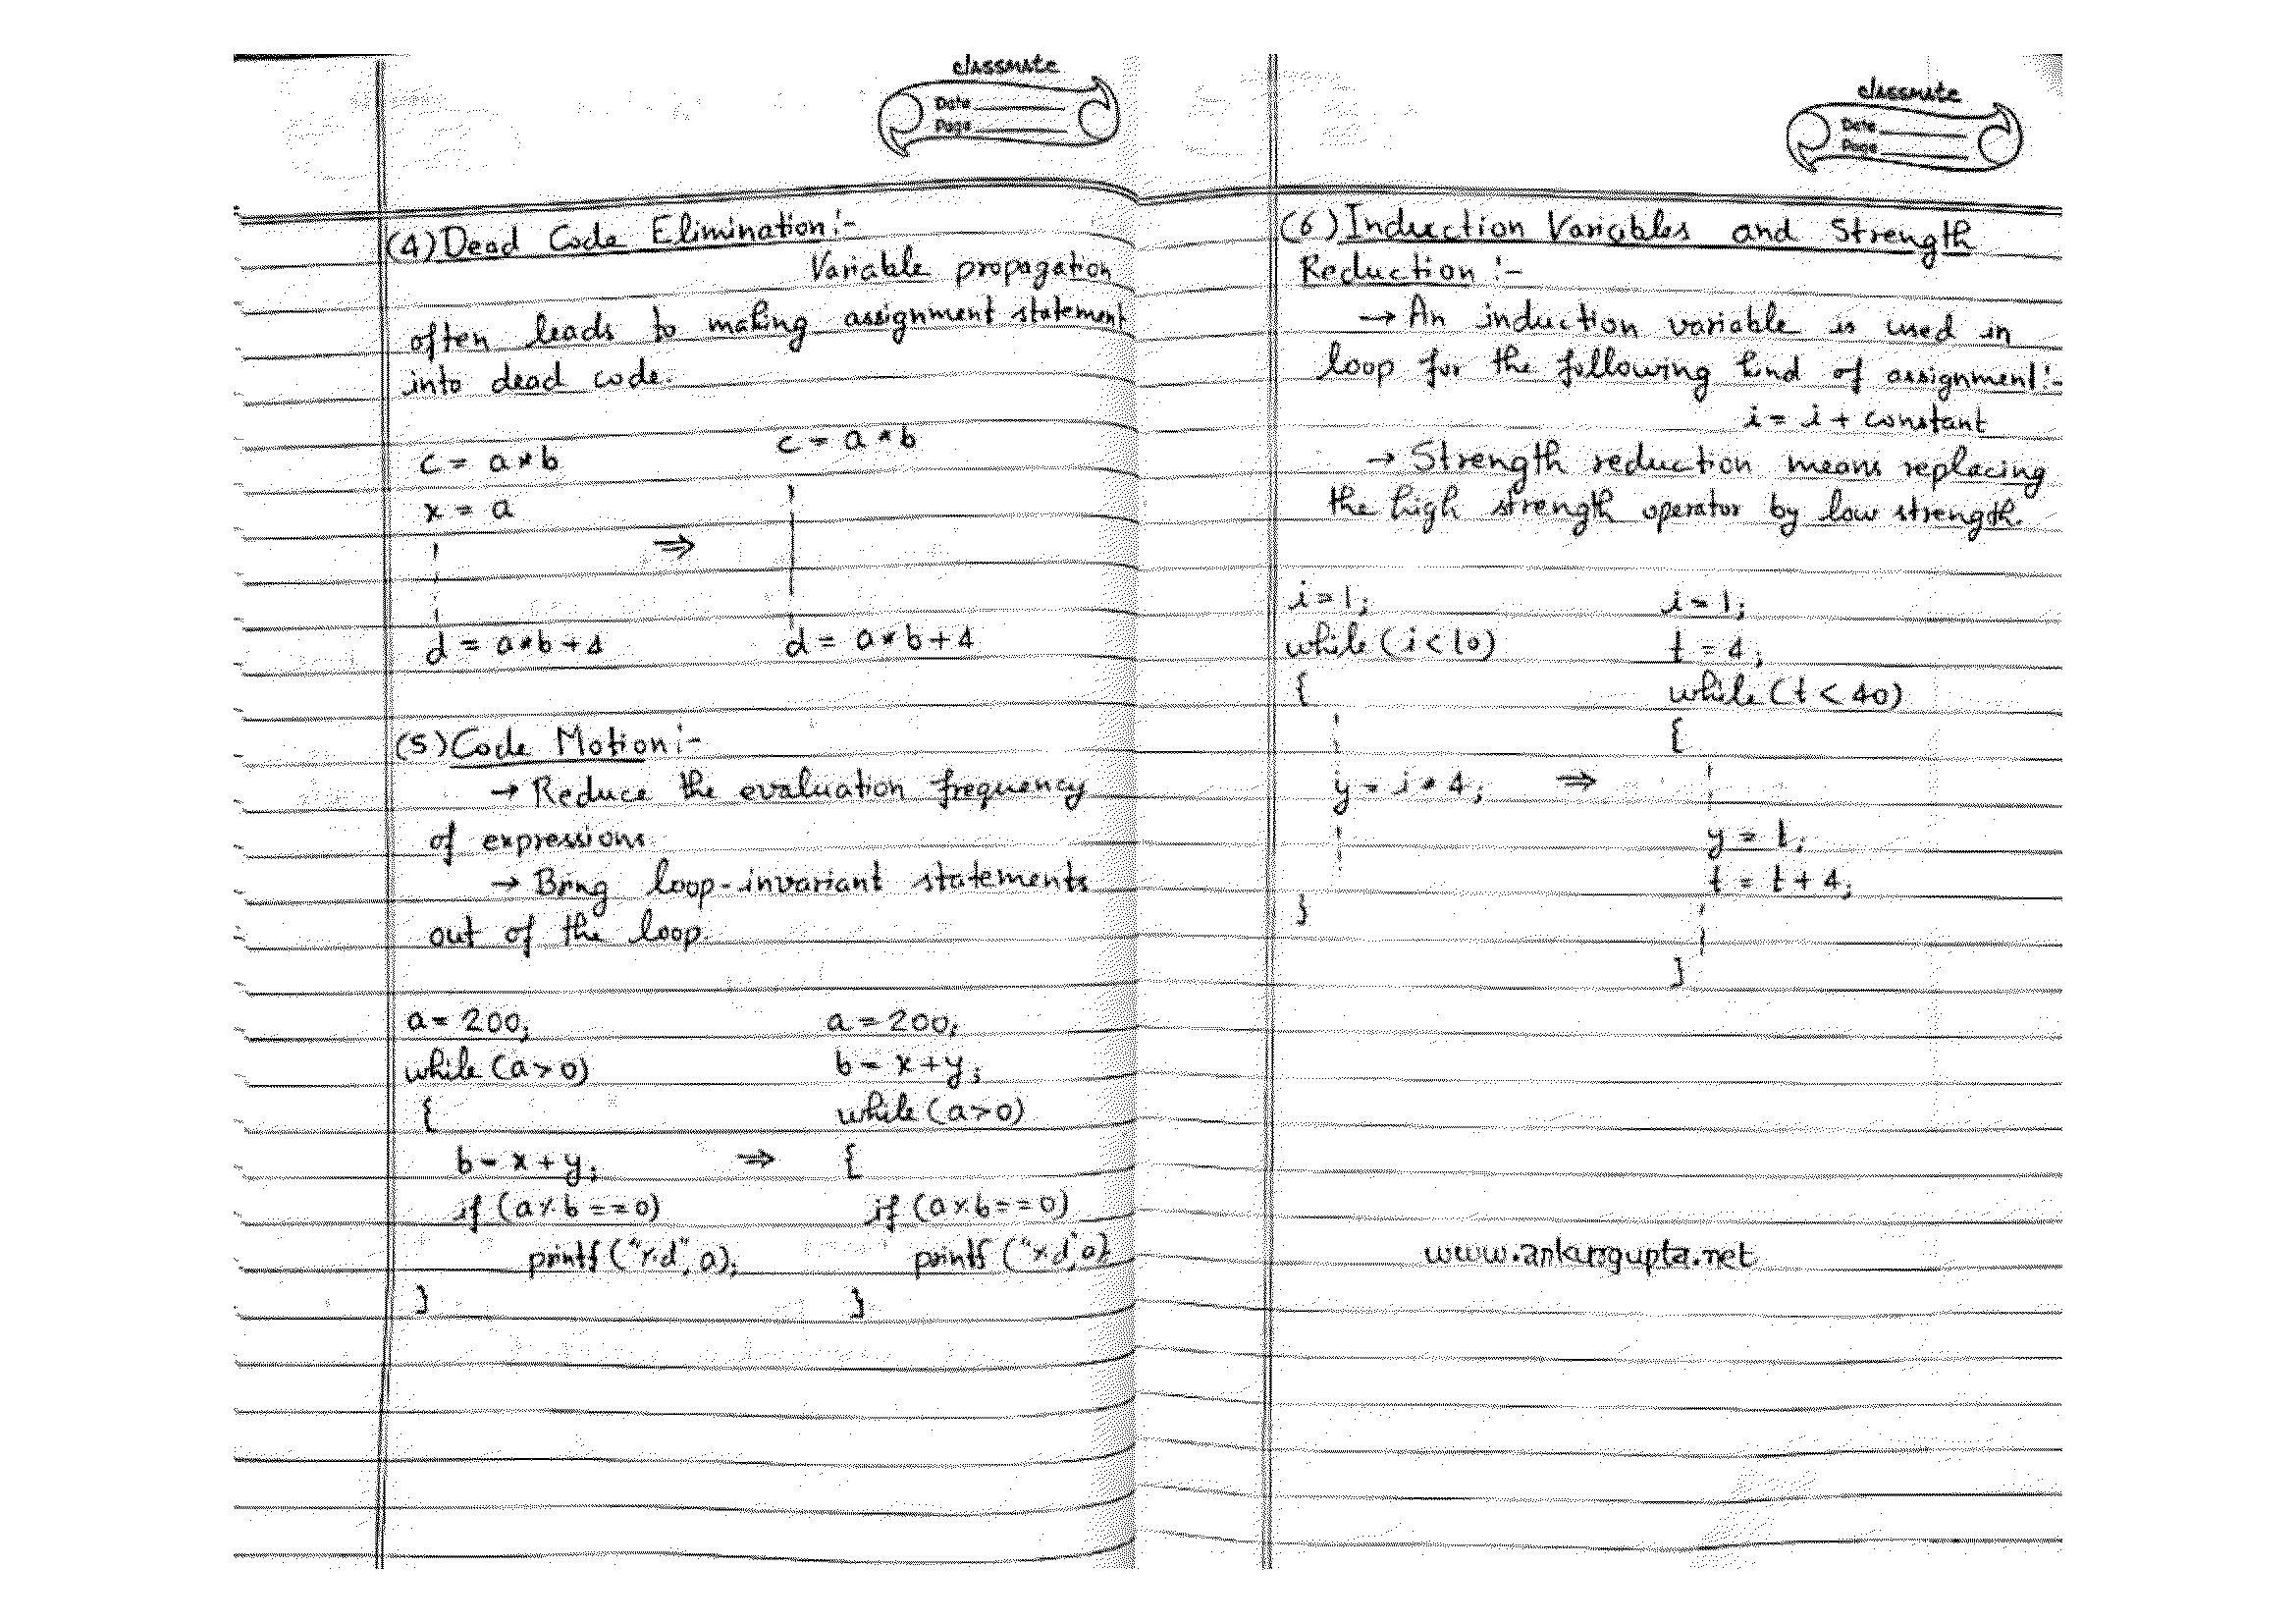 classmate
Date
Page
(4) Dead Code Elimination:-
Variable propagation
often leads to making assignment statement
into dead code.
c = a*b
x = a
d = a*b+4
⇒
c = a*b
d = a*b+4
(5) Code Motion:-
→ Reduce the evaluation frequency
of expressions.
→ Bring loop-invariant statements
out of the loop.
a = 200;
while (a>0)
{
b = x+y;
if (a%b==0)
printf("%d", a);
}
⇒
a = 200;
b = x+y;
while (a>0)
{
if (a%b==0)
printf("%d", a)
}
classmate
Date
Page
(6) Induction Variables and Strength
Reduction:-
→ An induction variable is used in
loop for the following kind of assignment:-
i = i + constant
→ Strength reduction means replacing
the high strength operator by low strength.
i=1;
while (i<10)
{
y = i*4;
}
⇒
i=1;
t=4;
while (t<40)
{
y = t;
t = t+4;
}
www.ankurgupta.net